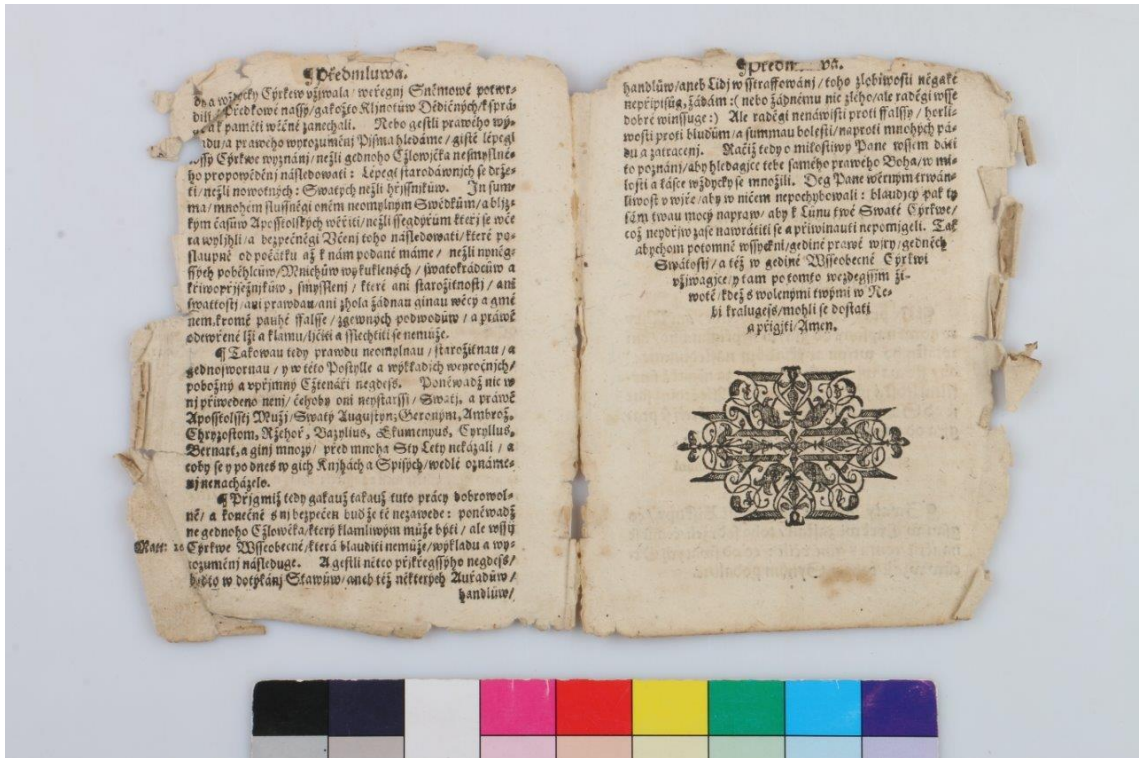 ¶Předmluwa.
wždycky Cýrkew vžjwala/ weřegnj Sněmowé potwr-
dili Předkowé nassy/ gakožto Klinotůw Dědičných/ k sprá-
k paměti wěčné zanechali. Nebo gestli prawého wý-
a prawého wyrozuměnj Pjsma hledáme/ gistě lépegi
Cýrkwe wyznánj/ nežli gednoho Cžlowjčka nesmyslné-
ho propowěděnj následowati: Lépegi starodáwných se drže-
ti/ nežli nowotných: Swatých nežli hřjssnjkůw. In sum-
ma/ mnohem slussněgi oněm neomylným Swědkům/ a bljz-
kým časům Aposstolským wěřiti/ nežli ssegdýřům kteřj se wče
ra wyljhli/ a bezpečněgi Včenj toho následowati/ které po-
slaupně od počátku až k nám podané máme/ nežli nyněg-
ssých poběhlcůw/ Mnichůw wykuklených/ swatokrádcůw a
křiwopřjsežnjkůw, smysslenj/ které ani starožitnostj/ ani
swattostj/ ani prawdau/ ani zhola žádnau ginau wěcý a gmé
nem, kromě pauhé ffalsse/ zgewných podwodůw/ a práwě
odewřené lži a klamu/ ljčiti a sslechtiti se nemůže.
¶Takowau tedy prawdu neomylnau/ starožitnau/ a
gednoswornau/ y w této Postylle a wýkladjch weyročnjch/
pobožný a vpřjmný Cžtenáři negdess. Poněwadž nic w
nj přiwedeno nenj/ čehoby oni neystarssj/ Swatj, a práwě
Aposstolssj Muži/ Swatý Augustyn, Geronym, Ambrož,
Chryzostom, Ržehoř, Bazylius, Ekumenyus, Cyryllus,
Bernart, a ginj mnozý/ před mnoha Sty Lety nekázali/ a
coby se y po dnes w gich Knjhách a Spisých/ wedlé oznáme-
nj nenacházelo.
¶Přigmiž tedy gakauž takauž tuto prácy dobrowol-
ně/ a konečně s nj bezpečen buď že tě nezawede: poněwadž
ne gednoho Cžlowěka/ který klamliwým může býti/ ale wssý
Matt: 16 Cýrkwe Wsseobecné/ která blauditi nemůže/ wýkladu a wy-
rozuměnj následuge. A gestli něťco přjkřegssýho negdess/
w dotýkánj Stawůw/ aneb též některých Auřadůw/
handlůw/
¶Předm wa.
handlůw/ aneb Lidj w sstraffowánj/ toho zlobiwosti něgaké
nepřipisůg, žádám: (nebo žádnému nic zlého/ ale raděgi wsse
dobré winssuge:) Ale raděgi nenáwisti proti ffalssy/ horli-
wosti proti bludům/ a summau bolesti/ naproti mnohých pá-
du a zatracenj. Račiž tedy o milostiwý Pane wssem dáti
to poznánj/ aby hledagjce tebe samého prawého Boha/ w mi-
losti a lásce wždycky se množili. Deg Pane wěrným trwán-
liwost v wjře/ aby w ničem nepochybowali: blaudjcý pak ty
sám twau mocý napraw/ aby k Lůnu twé Swaté Cýrkwe/
což neydřjw zase nawrátiti se a přiwinauti nepomjgeli. Tak
abychom potomně wssyckni/ gediné prawé wjry/ gedněch
Swátostj/ a též w gediné Wsseobecné Cýrkwi
vžjwagjce/ y tam po tomto wezdegssjm ži-
wotě/ kdež s wolenými twými w Ne-
bi kralugess/ mohli se dostati
a přigjti/ Amen.